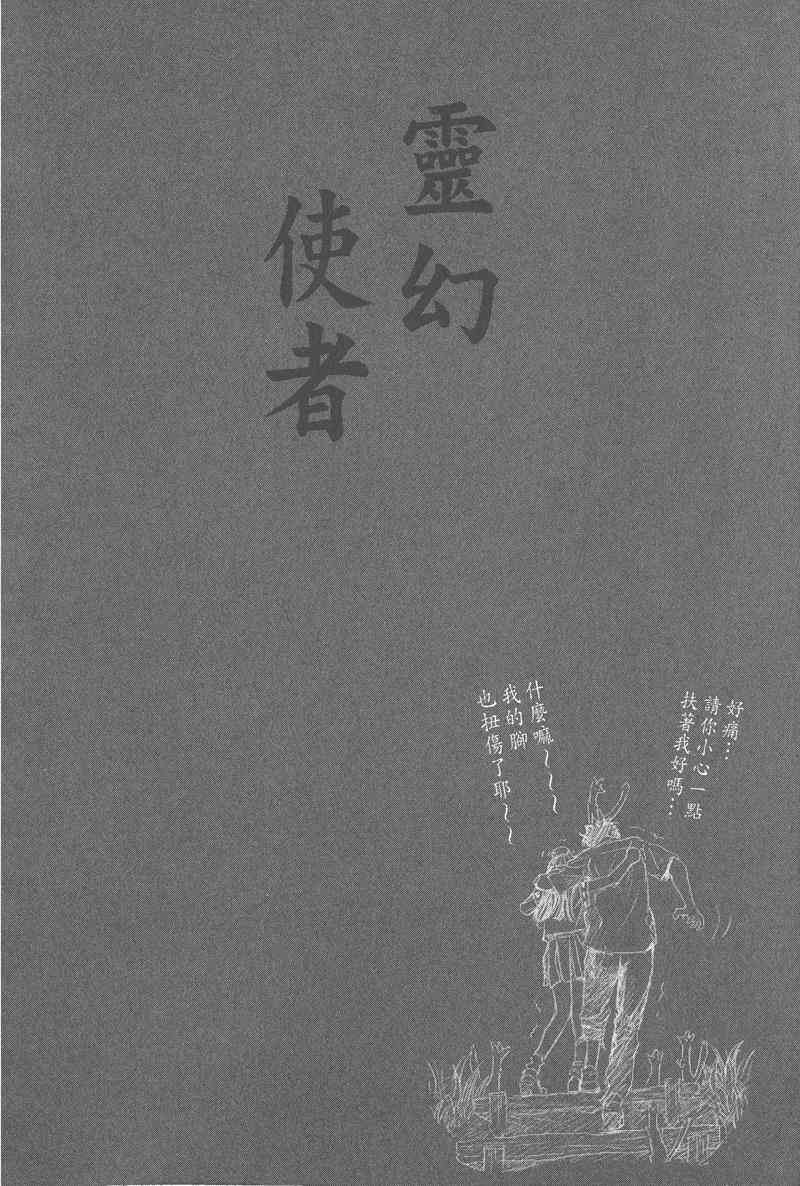 靈幻
使者
好痛…
請你小心一點
扶著我好嗎…
什麼嘛~~~
我的腳
也扭傷了耶~~